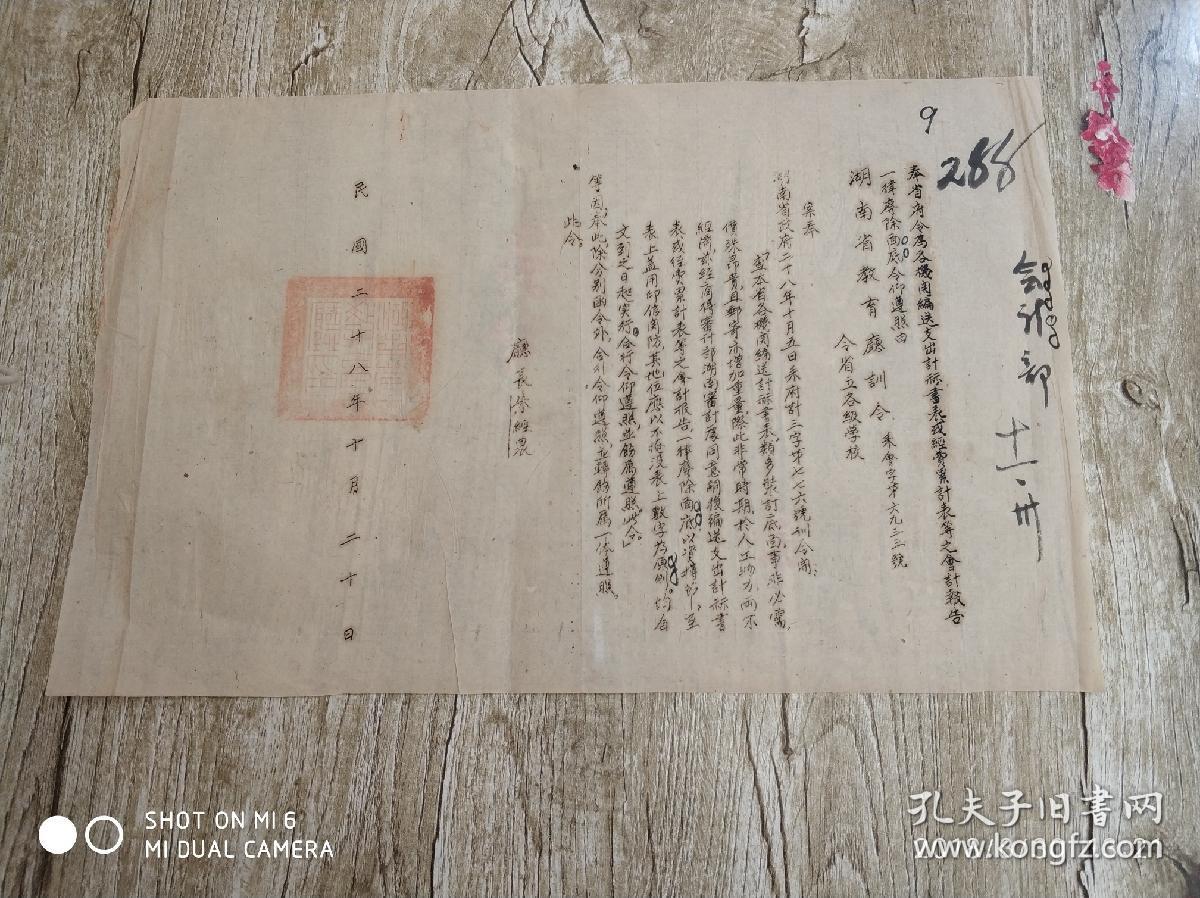 9
288
十一、卅
奉省府令为各機関編送支出計祘書表或經費累計表等之會計報告
一律廢除面底令仰遵照由
湖南省教育廳訓令
禾會字第六九三三號
令省立各級學校
案奉
湖南省政府二十八年十月五日禾府計三字第七七六號訓令開：
「查本省各機関編送計祘書表類多裝訂底面事非必需，
價殊昂貴，且郵寄亦增加重量，際此非常時期，於人工物力兩不
經濟，茲經商得審計部湖南審計處同意，嗣後編送支出計祘書
表或經費累計表等之會計報告，一律廢除面底，以資撙節，至
表上盖用印信関防，其地位應以不掩没表上數字為原則，均自
文到之日起实行，合行令仰遵照，並飭属遵照，此令。」
等因，奉此，除分别函令外，合行令仰遵照，並轉飭所属一体遵照。
此令。
廳長朱經農
民國二十八年十月二十日
SHOT ON MI 6
MI DUAL CAMERA
孔夫子旧書网
www.kongfz.com